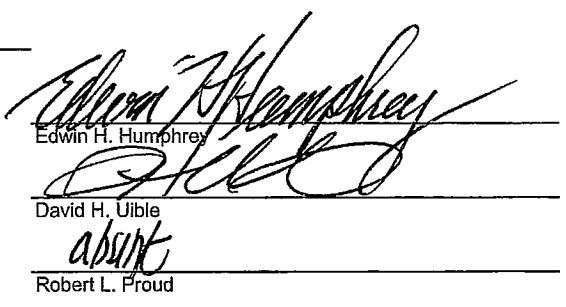 Edwin H Humphrey
Edwin H. Humphrey
David H. Uible
absent
Robert L. Proud